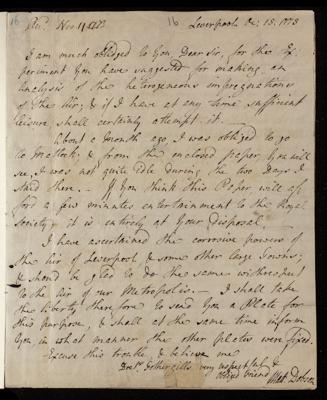 16
16
Liverpool Oc: 15. 1773
I am much obliged to You, Dear Sir, for the Ex-
periment You have suggested for making an
Analysis of the heterogeneous impregnations
of the Air; & if I have at any time sufficient
leisure shall certainly attempt it.—
About a month ago I was obliged to go
to Matlock; & from the enclosed paper You will
see, I was not quite Idle during the two Days I
staid there.— If You think this Paper will af-
for a few minutes entertainment to the Royal
Society— it is entirely at Your Disposal.—
I have ascertained the corrosive powers of
the Air of Leverpool & some other large Towns;
& should be glad to do the same with respect
to the Air of our Metropolis.— I shall take
the liberty therefore to send You a Plate for
this purpose, & shall at the same time inform
You in what manner the other plates were fixed.
Excuse this trouble, & believe me
Dear Dr. Fothergill's very respectful &
Oblig'd friend Matt. Dobson